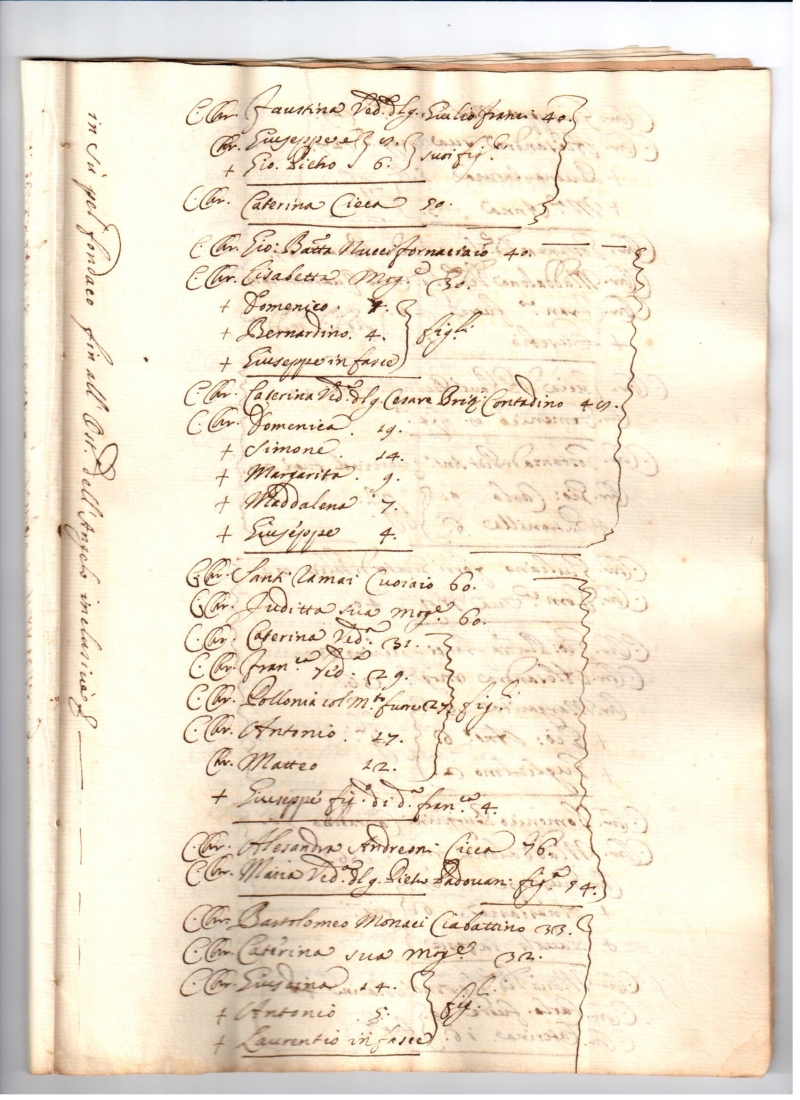 in su pel fondaco fin all' Ost. dell' Angelo inclusive
C. Chr. Faustina Ved.ª dlq. Giulio franci 40.
Chr. Giuseppe e
+ Gio. Pietro 6. suoi fig.li
C. Chr. Caterina Cieca 50.
C. Chr. Gio: Batta Nucci fornaciaio 40.
C. Chr. Lisabetta Mog.e 30.
+ Domenico
+ Bernardino. 4. figli
+ Giuseppe in fasce
C. Chr. Caterina Ved.ª dlq. Cesare Brizi Contadino
C. Chr. Domenica. 19.
+ Simone. 14.
+ Margarita. 9.
+ Maddalena 7.
+ Giuseppe 4.
C. Chr. Santi Cuoiaio 60.
C. Chr. Juditta sua mog.e 60.
C. Chr. Caterina Ved.ª 31.
C. Chr. Fran.ca Ved.ª 29.
C. Chr. Pollonia col m.to fuore 27. fig.li
C. Chr. Antonio. 17.
Chr. Matteo 12.
+ Giuseppe fig.o di d.ª fran.ca 4.
C. Chr. Alesandra Andreoni Cieca 76.
C. Chr. Maria Ved.ª dlq. Pietro Padovani fig.ª 54.
C. Chr. Bartolomeo Monaci Ciabattino 33.
C. Chr. Caterina sua Mog.e 32.
C. Chr. 14.
+ Antonio 5. figli
+ Laurentio in fasce